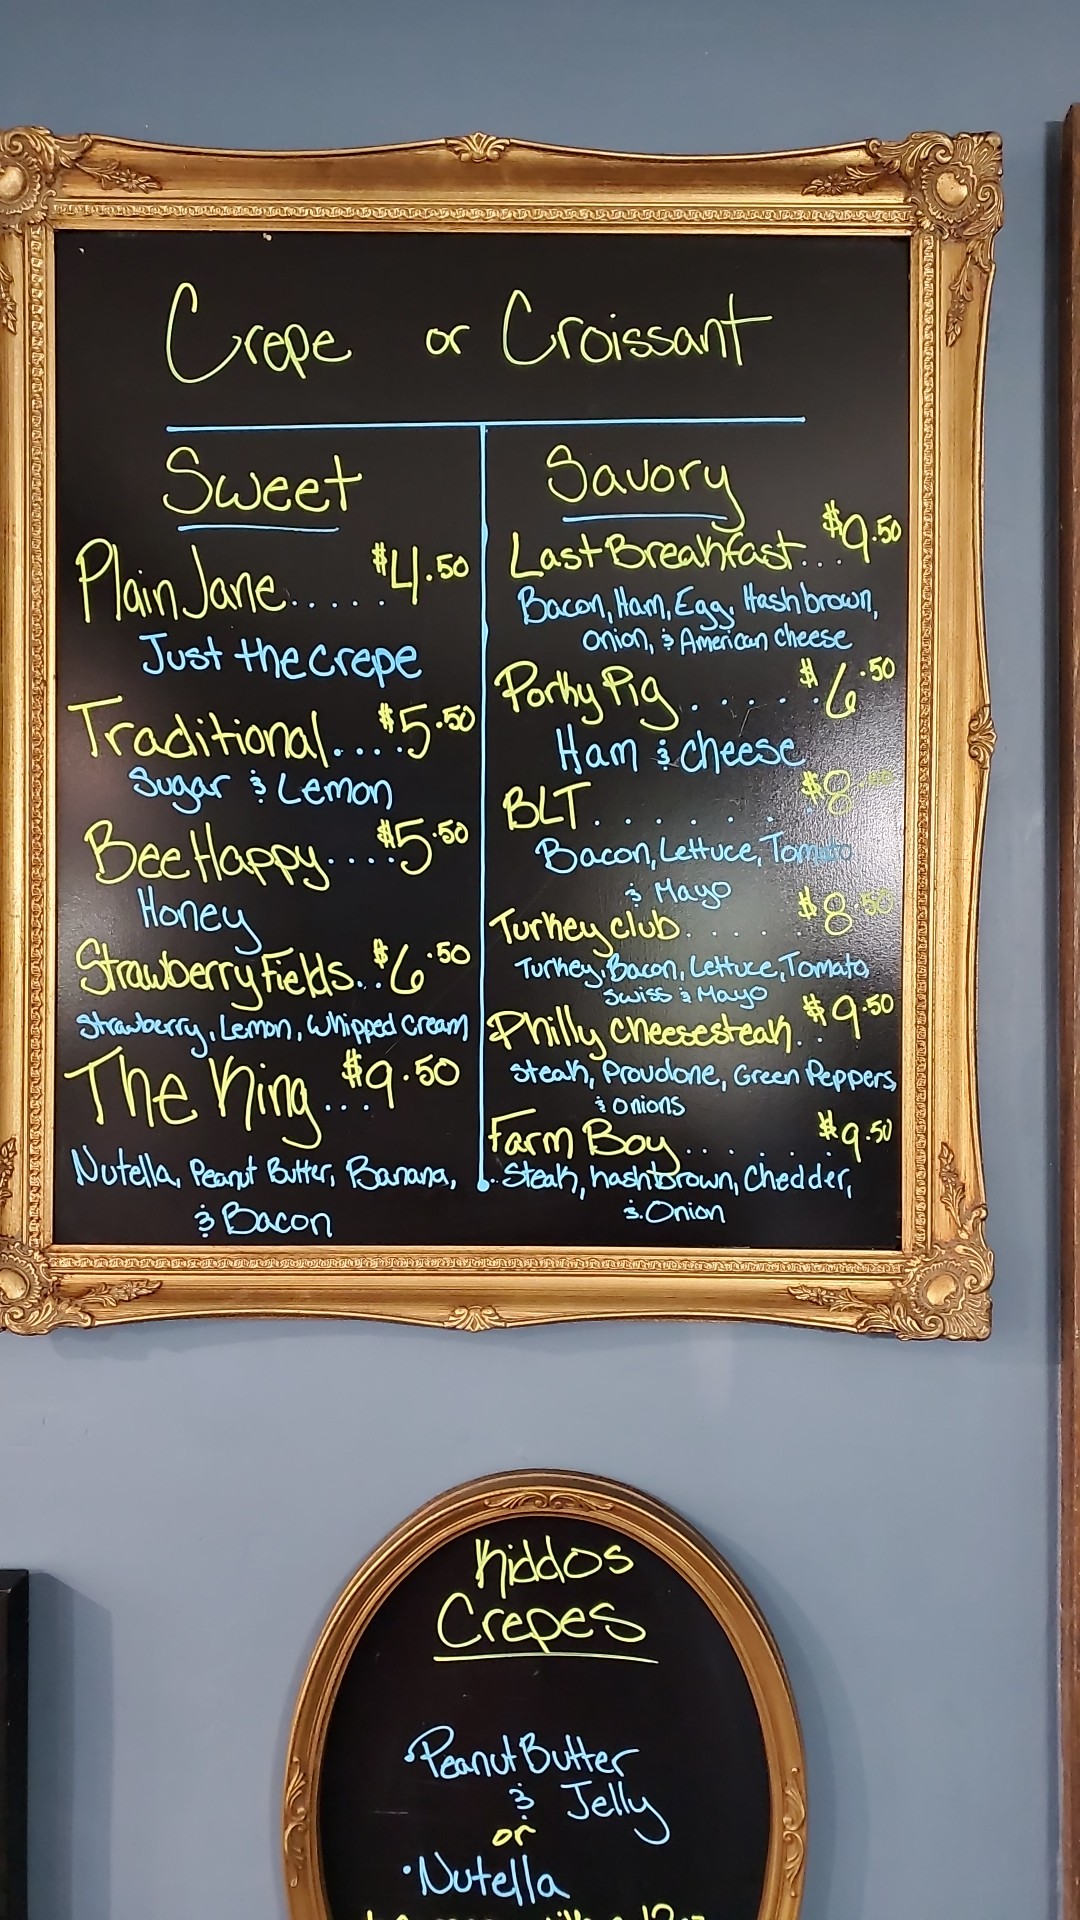 Crepe or Croissant
Sweet
Plain Jane..... $4.50
Just the crepe
Traditional.... $5.50
Sugar & Lemon
Bee Happy.... $5.50
Honey
Strawberry Fields.. $6.50
Strawberry, Lemon, Whipped Cream
The King... $9.50
Nutella, Peanut Butter, Banana,
& Bacon
Savory
Last Breakfast... $9.50
Bacon, Ham, Egg, Hashbrown,
Onion, & American Cheese
Porky Pig...... $6.50
Ham & Cheese
BLT........ $8
Bacon, Lettuce, Tomato
& Mayo
Turkey Club..... $8.50
Turkey, Bacon, Lettuce, Tomato,
Swiss & Mayo
Philly Cheesesteak.. $9.50
Steak, Provolone, Green Peppers,
& Onions
Farm Boy...... $9.50
Steak, hashbrown, Chedder,
& Onion
Kiddos
Crepes
• Peanut Butter
& Jelly
or
• Nutella